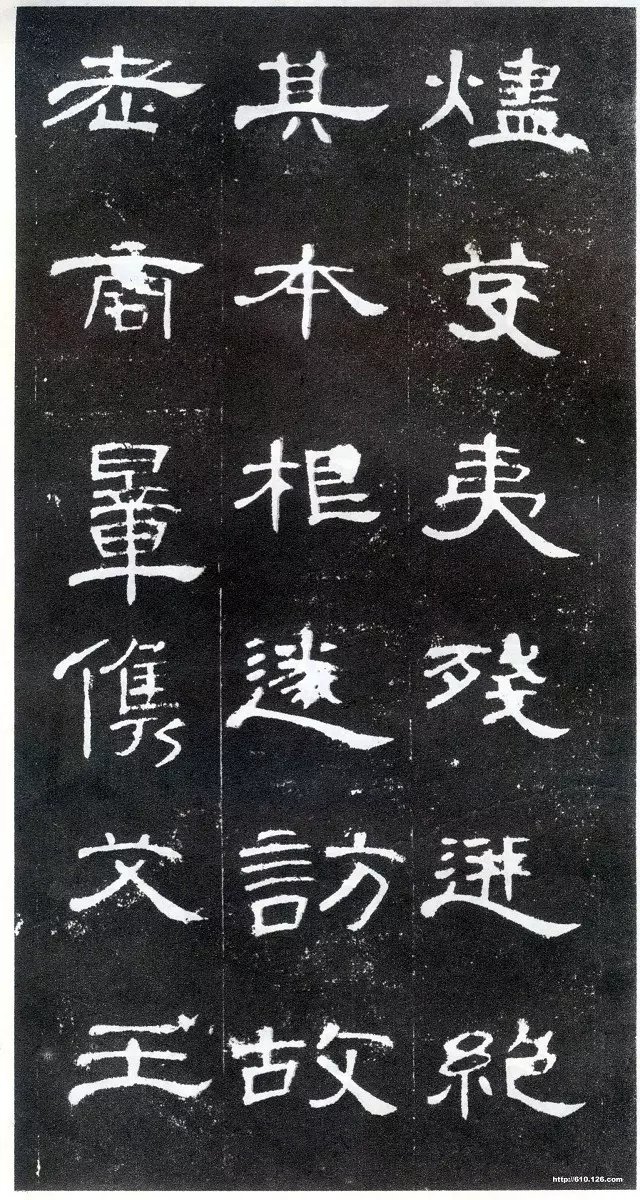 燼芟夷殘迸絕
其本根遂訪故
老商量儁艾王
http://610.126.com